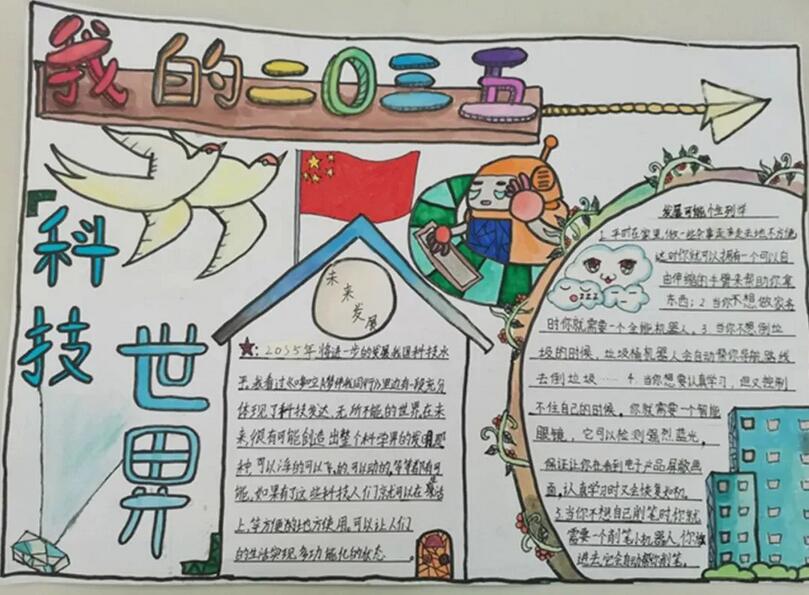 我的二〇三五
科技
世界
未来发展
2035年将进一步的发展我国科技水
平,我看过《哆啦A梦伴我同行》里边有一段充分
体现了科技发达,无所不能的世界,在未
来,很有可能创造出整个科学界的发明
种,可以浮的可以飞的,可以动的,等等都有可
能,如果有了这些科技人们就可以在
上,等方便的地方使用,可以让人们
的生活实现多功能化的状态.
发展可能性列举
1.平时在家里,做一些杂事走来走去地不方便
这时你就可以拥有一个可以自
由伸缩的手臂来帮助你拿
东西;2.当你不想做家务
时你就需要一个全能机器人.3.当你不想倒垃
圾的时候,垃圾桶机器人会自动帮你导航路线
去倒垃圾……4.当你想要认真学习,但又控制
不住自己的时候.你就需要一个智能
眼镜,它可以检测强烈蓝光,
保证让你在看到电子产品屏蔽画
面,认真学习时又会恢复如初。
5.当你不想自己削笔时,你就
需要一个削笔小机器人,你
进去,它会自动帮你削笔。
zzz